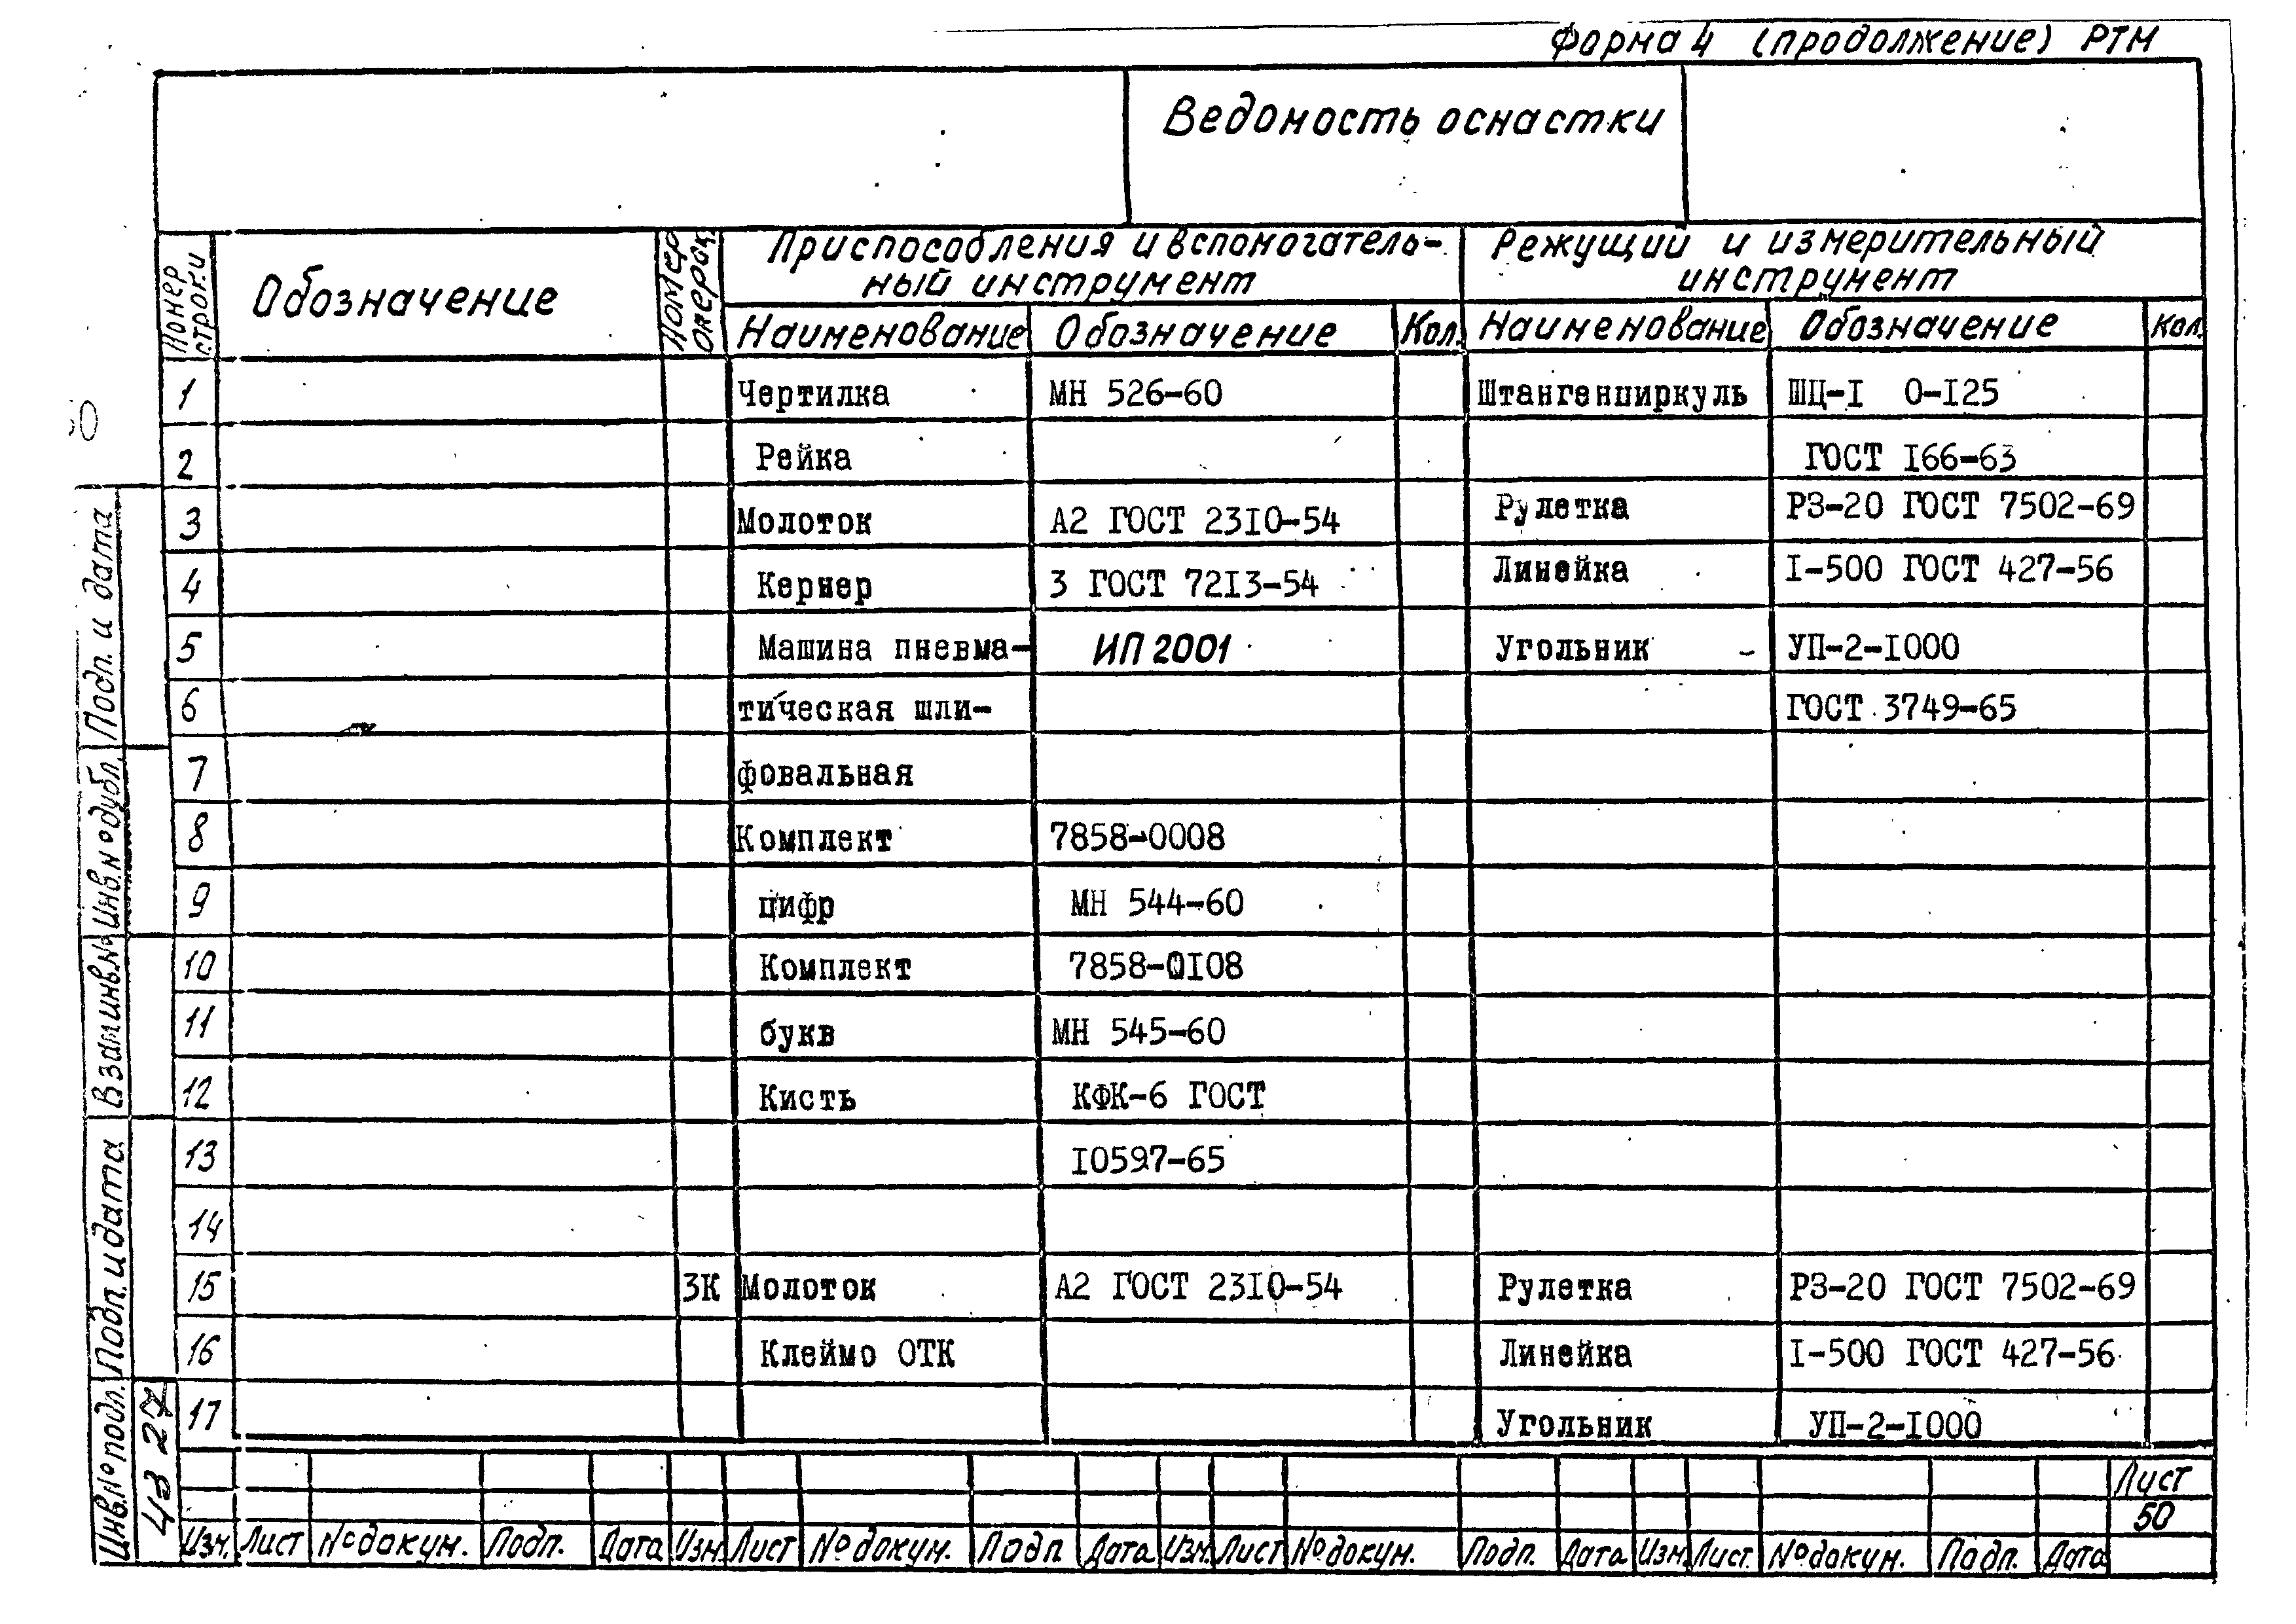 Форма 4 (продолжение) РТМ
Ведомость оснастки
Номер строки
Обозначение
Номер операц.
Приспособления и вспомогатель-
ный инструмент
Режущий и измерительный
инструмент
Наименование Обозначение Кол. Наименование Обозначение Кол.
1 Чертилка МН 526-60 Штангенциркуль ШЦ-I 0-I25
2 Рейка ГОСТ I66-63
3 Молоток А2 ГОСТ 23I0-54 Рулетка РЗ-20 ГОСТ 7502-69
4 Кернер 3 ГОСТ 72I3-54 Линейка I-500 ГОСТ 427-56
5 Машина пневма- ИП 2001 Угольник УП-2-I000
6 тическая шли- ГОСТ 3749-65
7 фовальная
8 Комплект 7858-0008
9 цифр МН 544-60
10 Комплект 7858-0I08
11 букв МН 545-60
12 Кисть КФК-6 ГОСТ
13 I0597-65
14
15 3К Молоток А2 ГОСТ 23I0-54 Рулетка РЗ-20 ГОСТ 7502-69
16 Клеймо ОТК Линейка I-500 ГОСТ 427-56
17 Угольник УП-2-I000
Лист
50
Изм. Лист № докум. Подп. Дата Изм Лист № докум. Подп Дата Изм. Лист № докум. Подп. Дата Изм Лист. № докум. Подп. Дата
Подп. и дата
Инв. № дубл.
Взам инв. №
Подп. и дата
Инв. № подп.
43 27